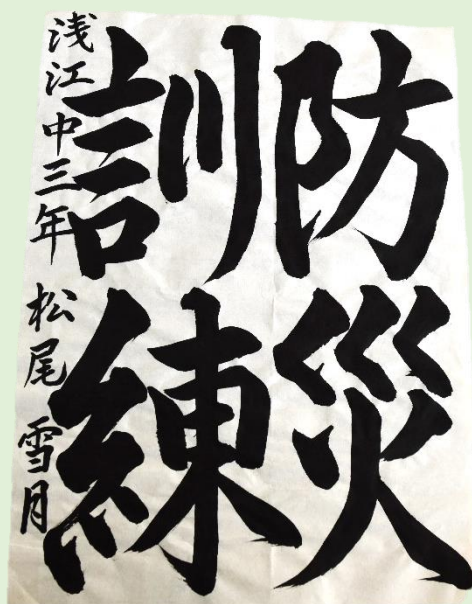 防災
訓練
浅江中三年 松尾 雪月